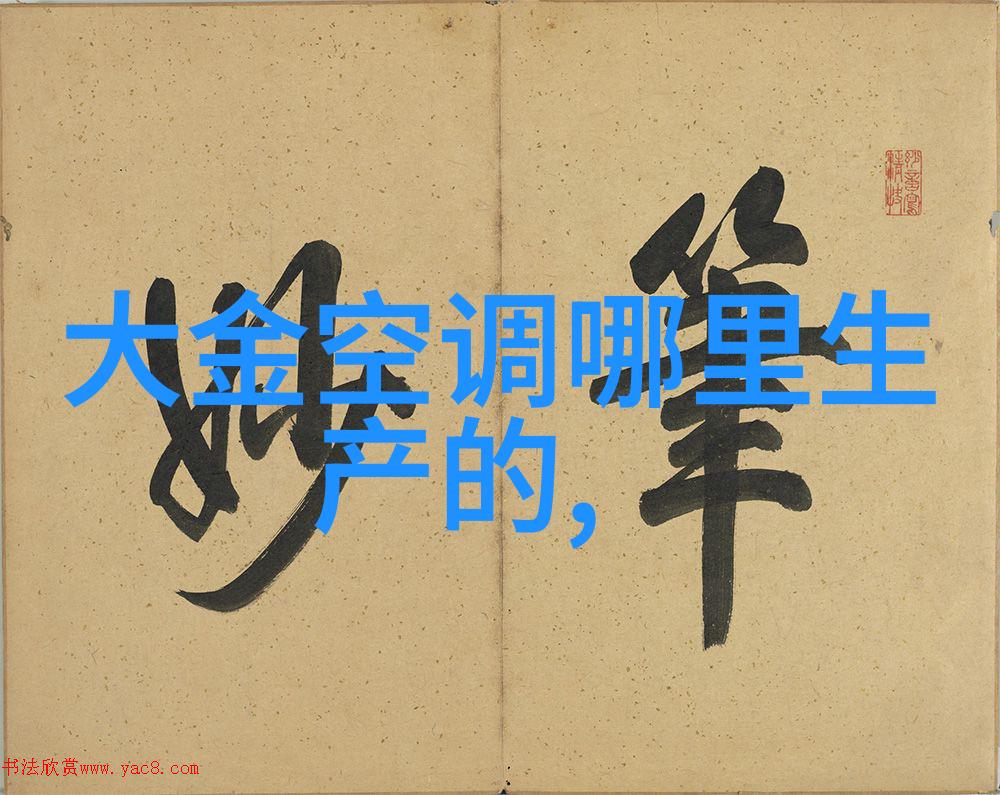 筆
妙
大金空调哪里生
产的,
书法欣赏www.yac8.com